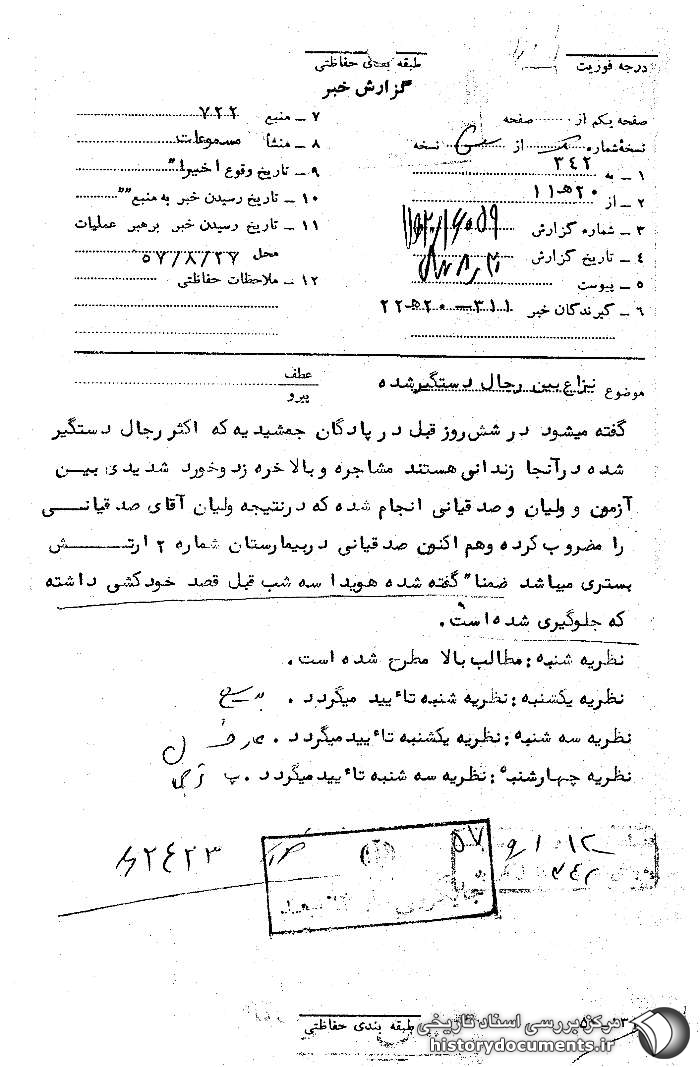 طبقه بندی حفاظتی
درجه فوریت
گزارش خبر
صفحه یکم از ........ صفحه
نسخه شماره ........ از ........ نسخه
۱ ـ به ۳۴۲
۲ ـ از ۲۰هـ۱۱
۳ ـ شماره گزارش
۴ ـ تاریخ گزارش
۵ ـ پیوست
۶ ـ گیرندگان خبر ۳۱۱ــ۲۰هـ۲۲
۷ ـ منبع ۷۲۲
۸ ـ منشأ مسموعات
۹ ـ تاریخ وقوع اخیرا"
۱۰ ـ تاریخ رسیدن خبر به منبع ""
۱۱ ـ تاریخ رسیدن خبر برهبر عملیات
محل ۵۷/۸/۲۷
۱۲ ـ ملاحظات حفاظتی
موضوع نزاع بین رجال دستگیر شده
عطف
پیرو
گفته میشود در شش روز قبل در پادگان جمشیدیه که اکثر رجال دستگیر
شده در آنجا زندانی هستند مشاجره و بالاخره زد و خورد شدیدی بین
آزمون و ولیان و صدقیانی انجام شده که در نتیجه ولیان آقای صدقیانی
را مضروب کرده و هم اکنون صدقیانی در بیمارستان شماره ۲ ارتش
بستری میباشد ضمنا" گفته شده هویدا سه شب قبل قصد خودکشی داشته
که جلوگیری شده است.
نظریه شنبه : مطالب بالا مطرح شده است.
نظریه یکشنبه : نظریه شنبه تائید میگردد.
نظریه سه شنبه : نظریه یکشنبه تائید میگردد.
نظریه چهارشنبه : نظریه سه شنبه تائید میگردد. پ
طبقه بندی حفاظتی
مرکز بررسی اسناد تاریخی
historydocuments.ir